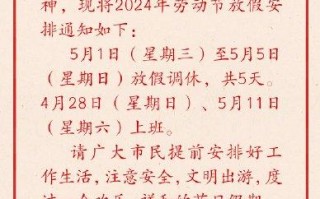 神，现将2024年劳动节放假安
排通知如下：
5月1日（星期三）至5月5日
（星期日）放假调休，共5天。
4月28日（星期日）、5月11日
（星期六）上班。
请广大市民提前安排好工
作生活，注意安全，文明出游，度